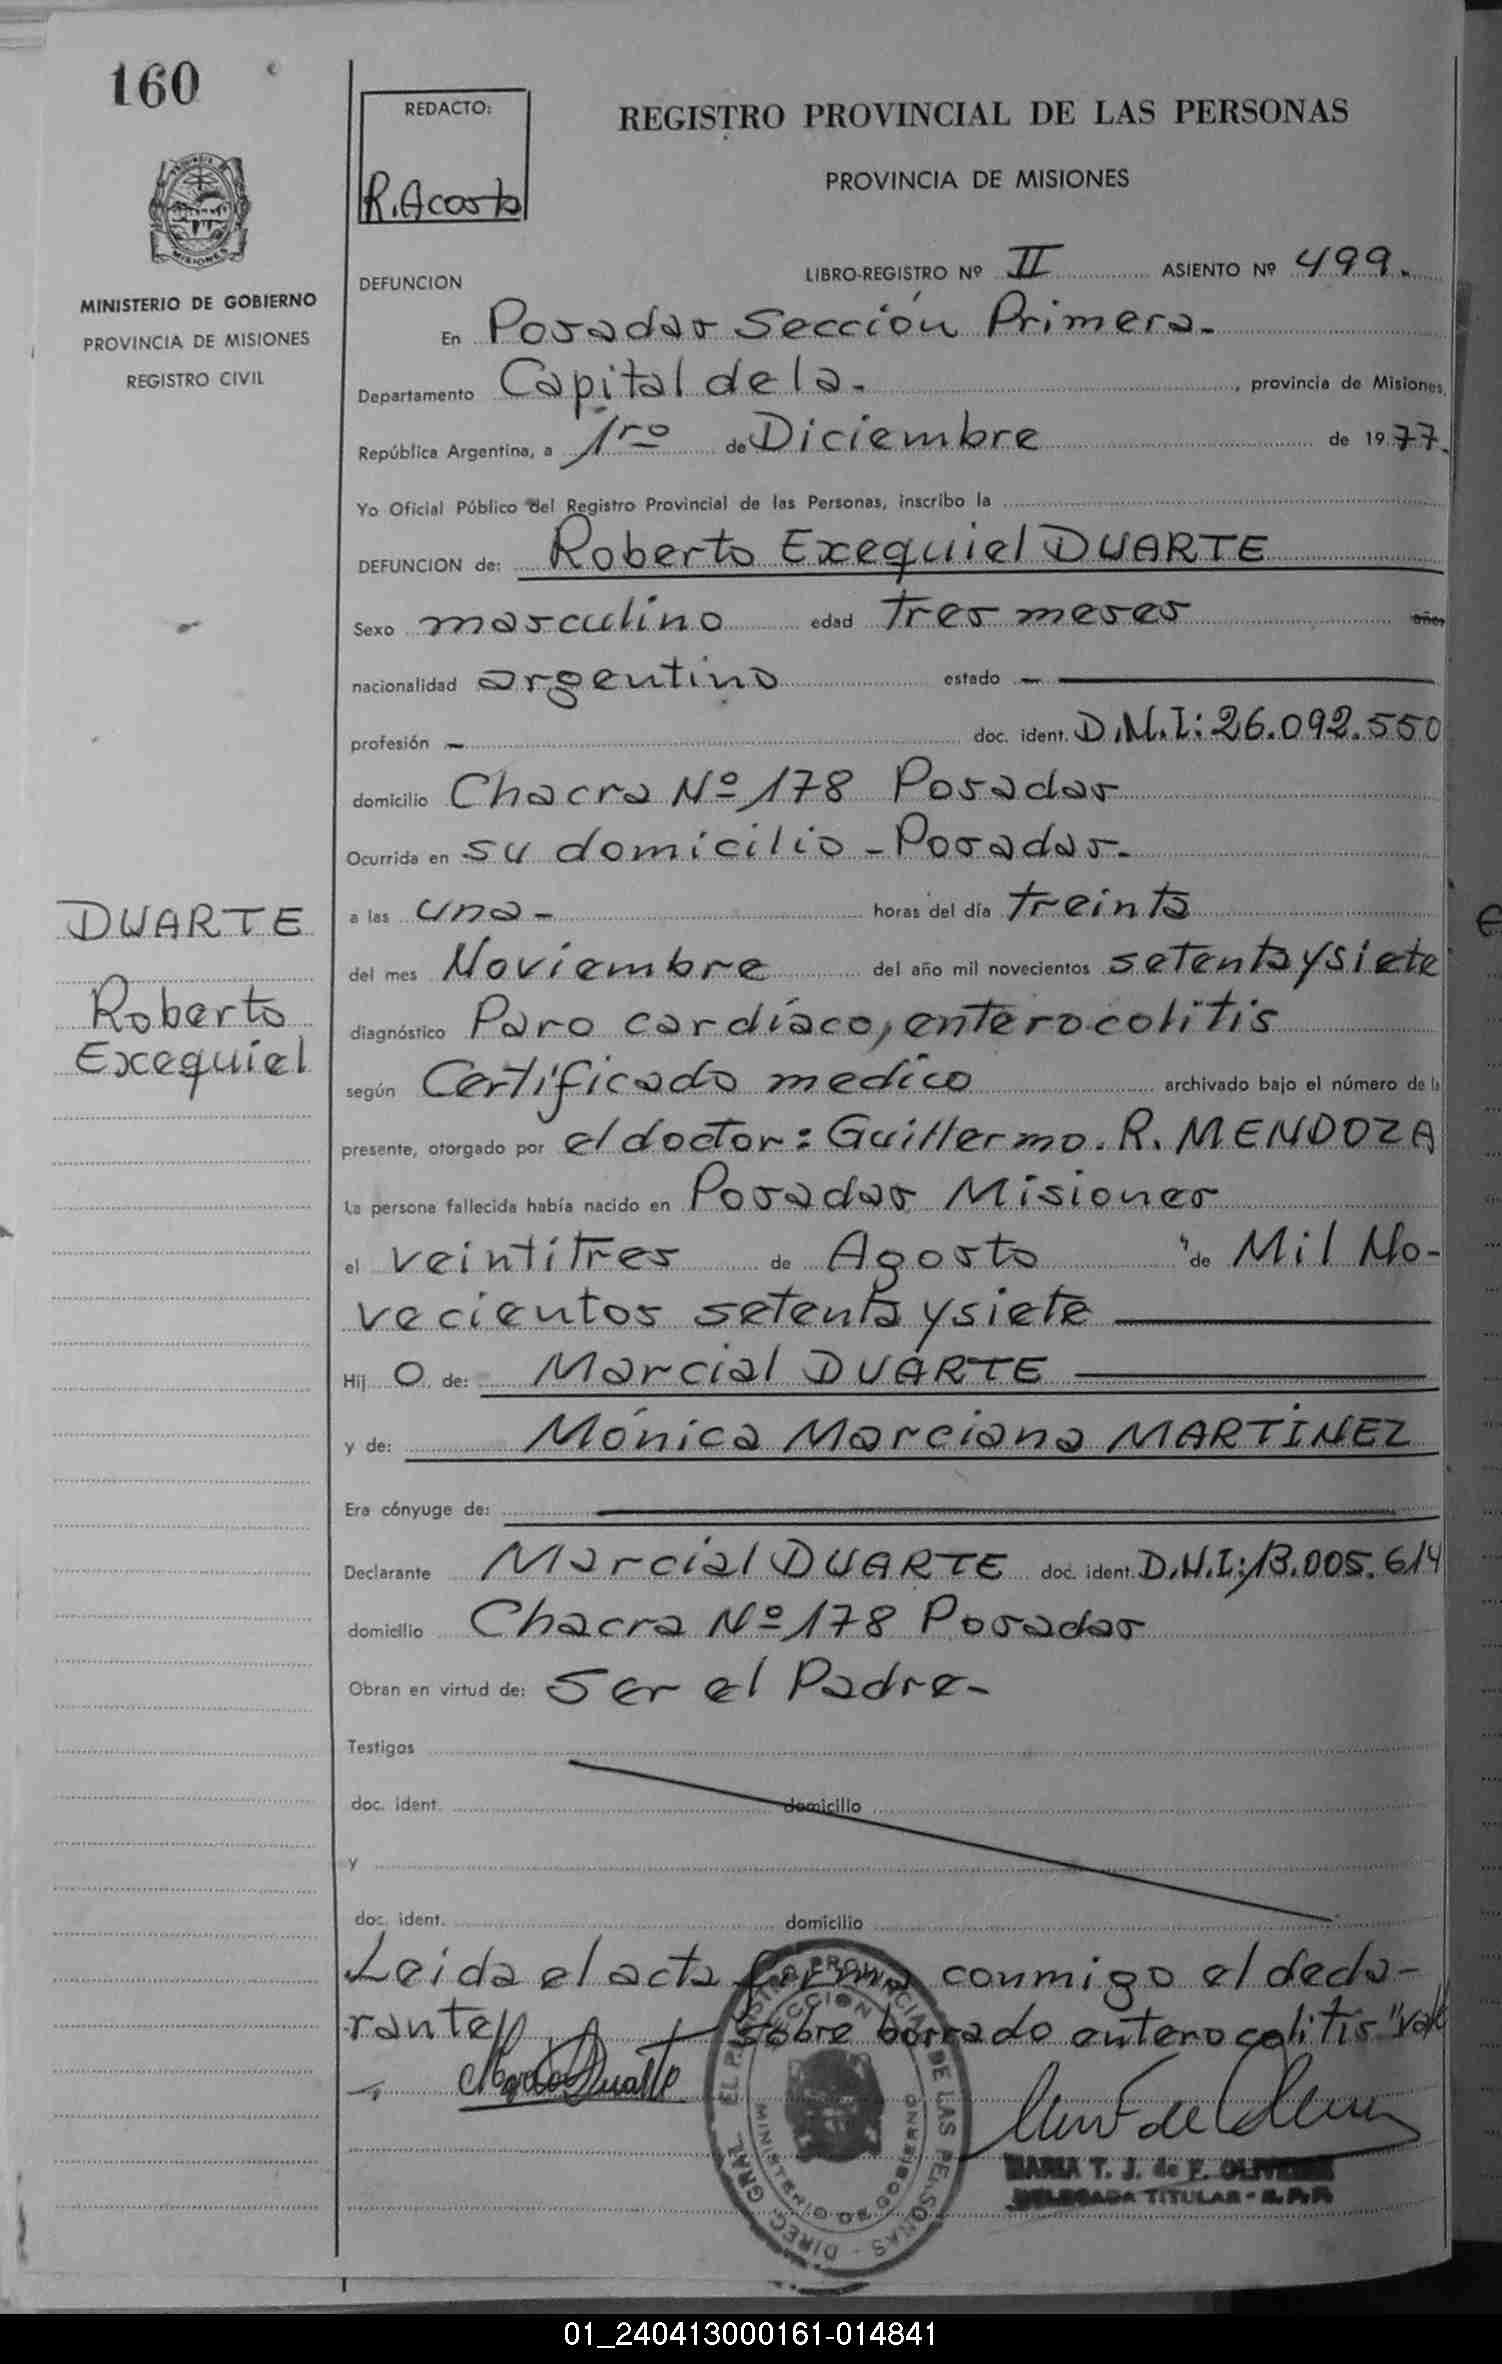 160
REDACTO:
R. Acosta
REGISTRO PROVINCIAL DE LAS PERSONAS
PROVINCIA DE MISIONES
MISIONES
MINISTERIO DE GOBIERNO
PROVINCIA DE MISIONES
REGISTRO CIVIL
DEFUNCION
LIBRO-REGISTRO Nº II ASIENTO Nº 499.
En Posadas Sección Primera-
Departamento Capital de la- , provincia de Misiones,
República Argentina, a 1ro de Diciembre de 1977.
Yo Oficial Público del Registro Provincial de las Personas, inscribo la
DEFUNCION de: Roberto Exequiel DUARTE
Sexo masculino edad tres meses años
nacionalidad argentino estado -
profesión - doc. ident. D.N.I: 26.092.550
domicilio Chacra Nº 178 Posadas
Ocurrida en su domicilio - Posadas-
a las una- horas del día treinta
del mes Noviembre del año mil novecientos setenta y siete
diagnóstico Paro cardíaco, enterocolitis
según Certificado medico archivado bajo el número de la
presente, otorgado por el doctor: Guillermo. R. MENDOZA
La persona fallecida había nacido en Posadas Misiones
el veintitres de Agosto de Mil No-
vecientos setenta y siete
Hij o de: Marcial DUARTE
y de: Mónica Marciana MARTÍNEZ
Era cónyuge de:
Declarante Marcial DUARTE doc. ident. D.N.I: 13.005.614
domicilio Chacra Nº 178 Posadas
Obran en virtud de: Ser el Padre-
Testigos
doc. ident. domicilio
y
doc. ident. domicilio
Leida el acta firma conmigo el decla-
rante// sobre borrado enterocolitis "vale
DUARTE
Roberto
Exequiel
Duarte
DIREC. GRAL. EL REGISTRO PROVINCIAL DE LAS PERSONAS
SECCION
MINISTERIO DE GOBIERNO
MARIA T. J. de F.
DELEGADA TITULAR - R.P.P.
01_240413000161-014841